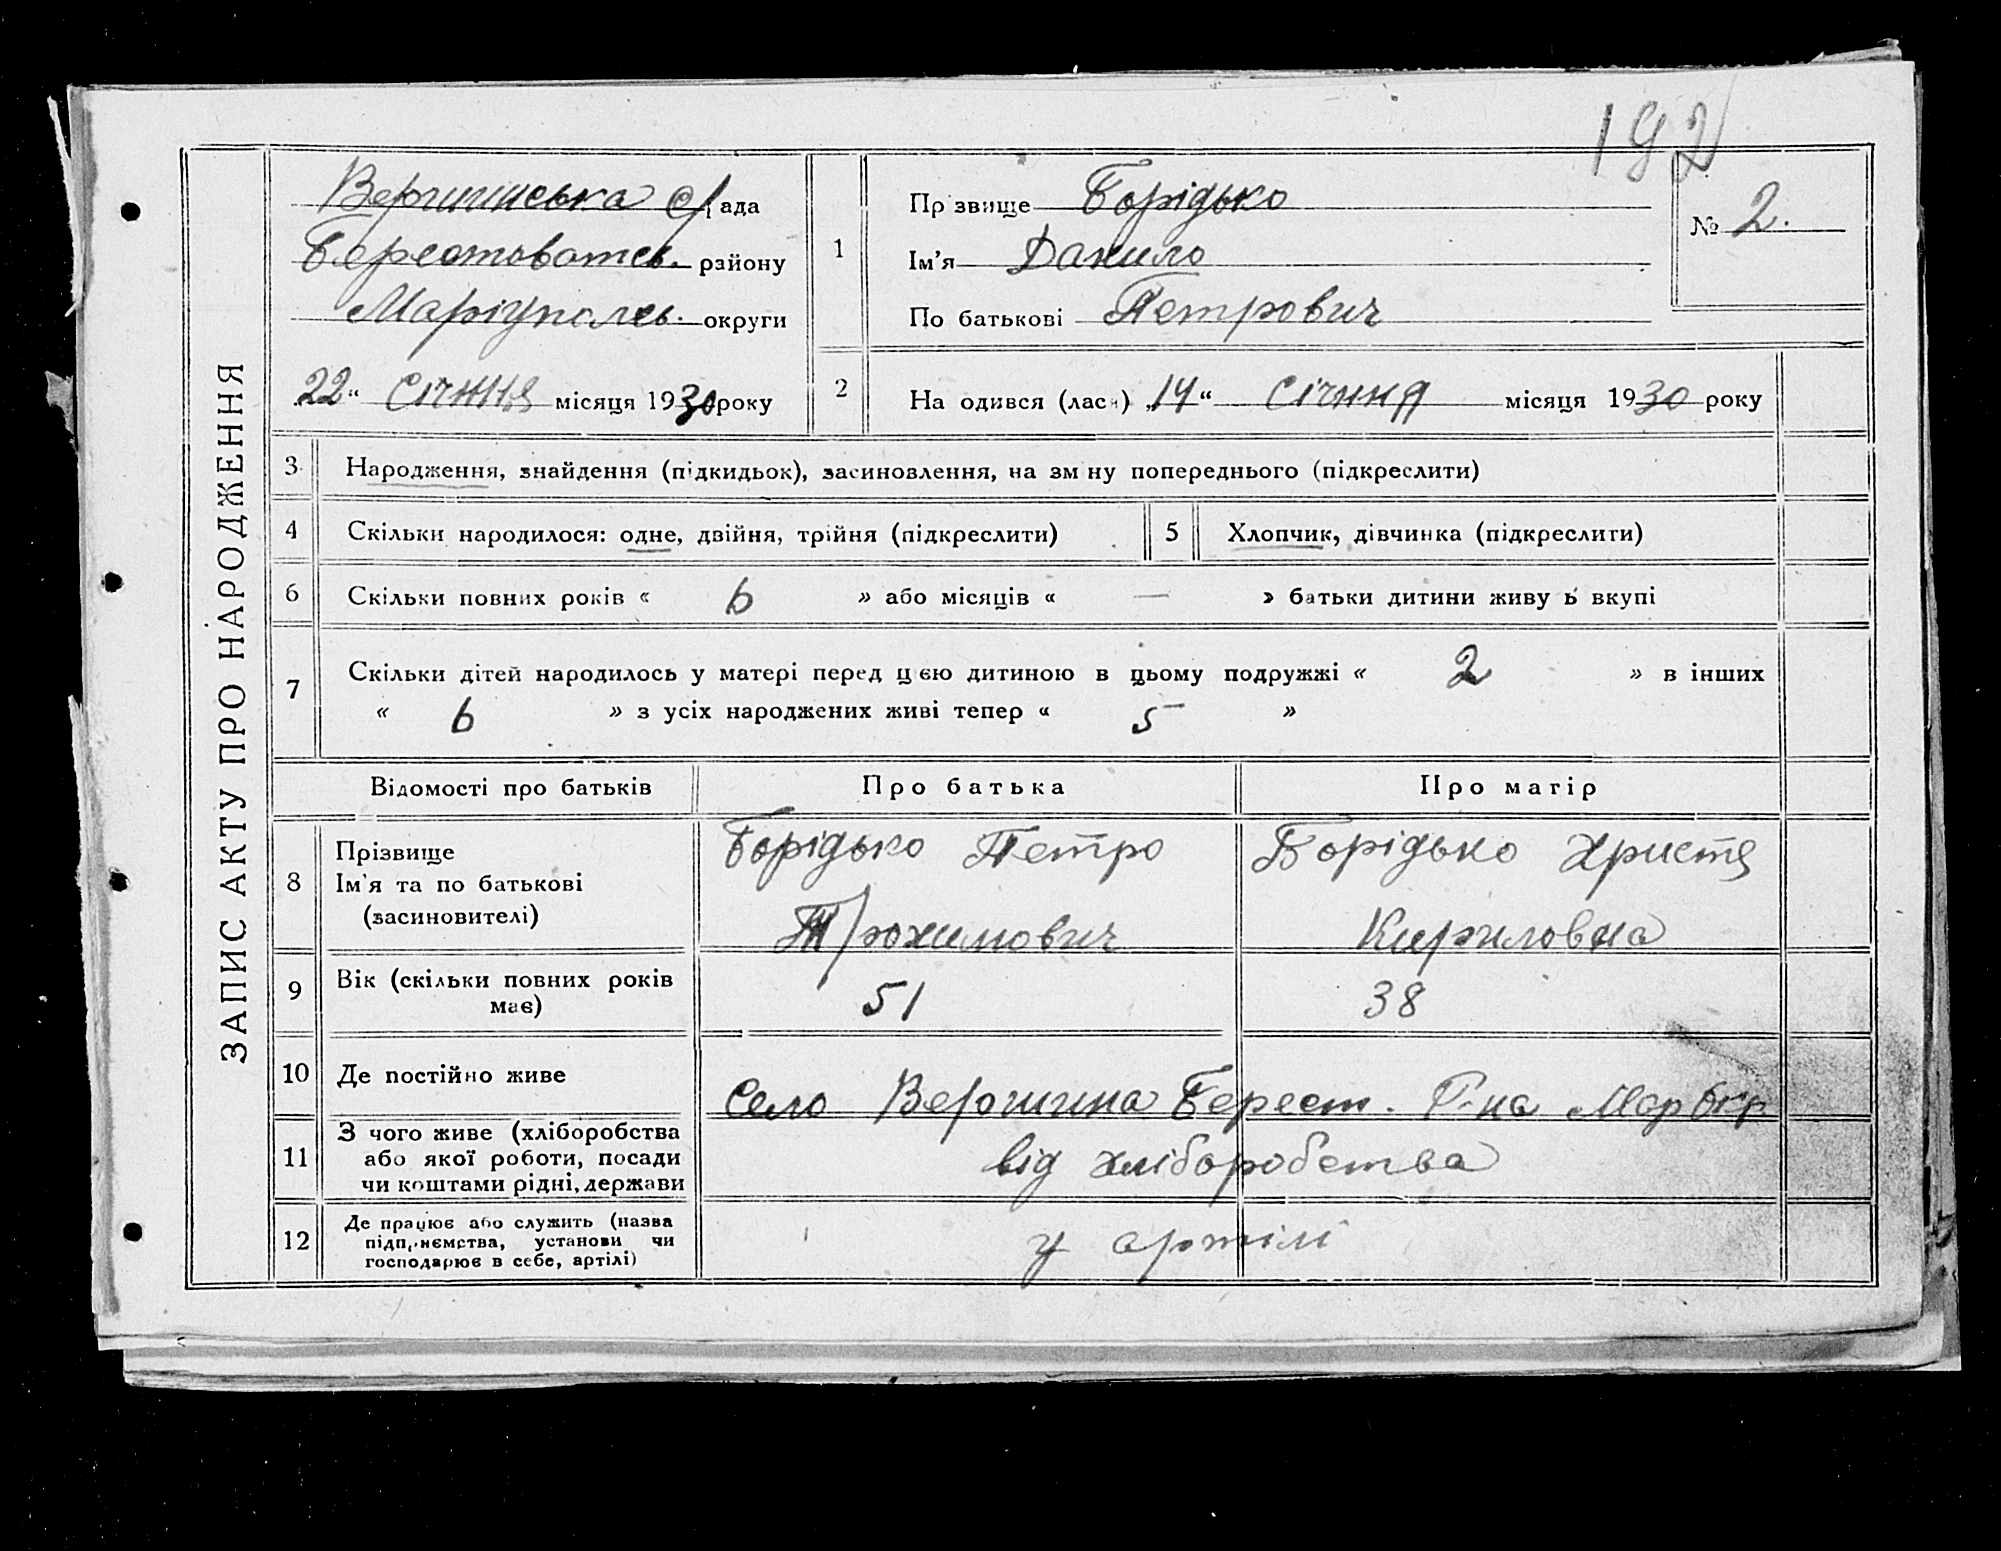 192
ЗАПИС АКТУ ПРО НАРОДЖЕННЯ
Вершинська с/ рада
Берестоватсь. району
Маріупольсь. округи
22 “ Січння місяця 1930 року
1
Прзвище Борідько
Ім’я Данило
По батькові Петрович
№ 2.
2
На одився (лася) „14“ січння місяця 1930 року
3 Народження, знайдення (підкидьок), засиновлення, на зм ну попереднього (підкреслити)
4 Скільки народилося: одне, двійня, трійня (підкреслити)
5 Хлопчик, дівчинка (підкреслити)
6 Скільки повних років « 6 » або місяців « — » батьки дитини живу ь вкупі
7 Скільки дітей народилось у матері перед цією дитиною в цьому подружжі « 2 » в інших
« 6 » з усіх народжених живі тепер « 5 »
Відомості про батьків
Про батька
Про матір
8
Прізвище
Ім’я та по батькові
(засиновителі)
Борідько Петро
Трохимович
Борідько Христя
Кириловна
9
Вік (скільки повних років
має)
51
38
10 Де постійно живе
Село Вершина Берест. Р-на Мар Окр
11
З чого живе (хліборобства
або якої роботи, посади
чи коштами рідні, держави
від хліборобства
12
Де працює або служить (назва
підприємства, установи чи
господарює в себе, артілі)
у артілі